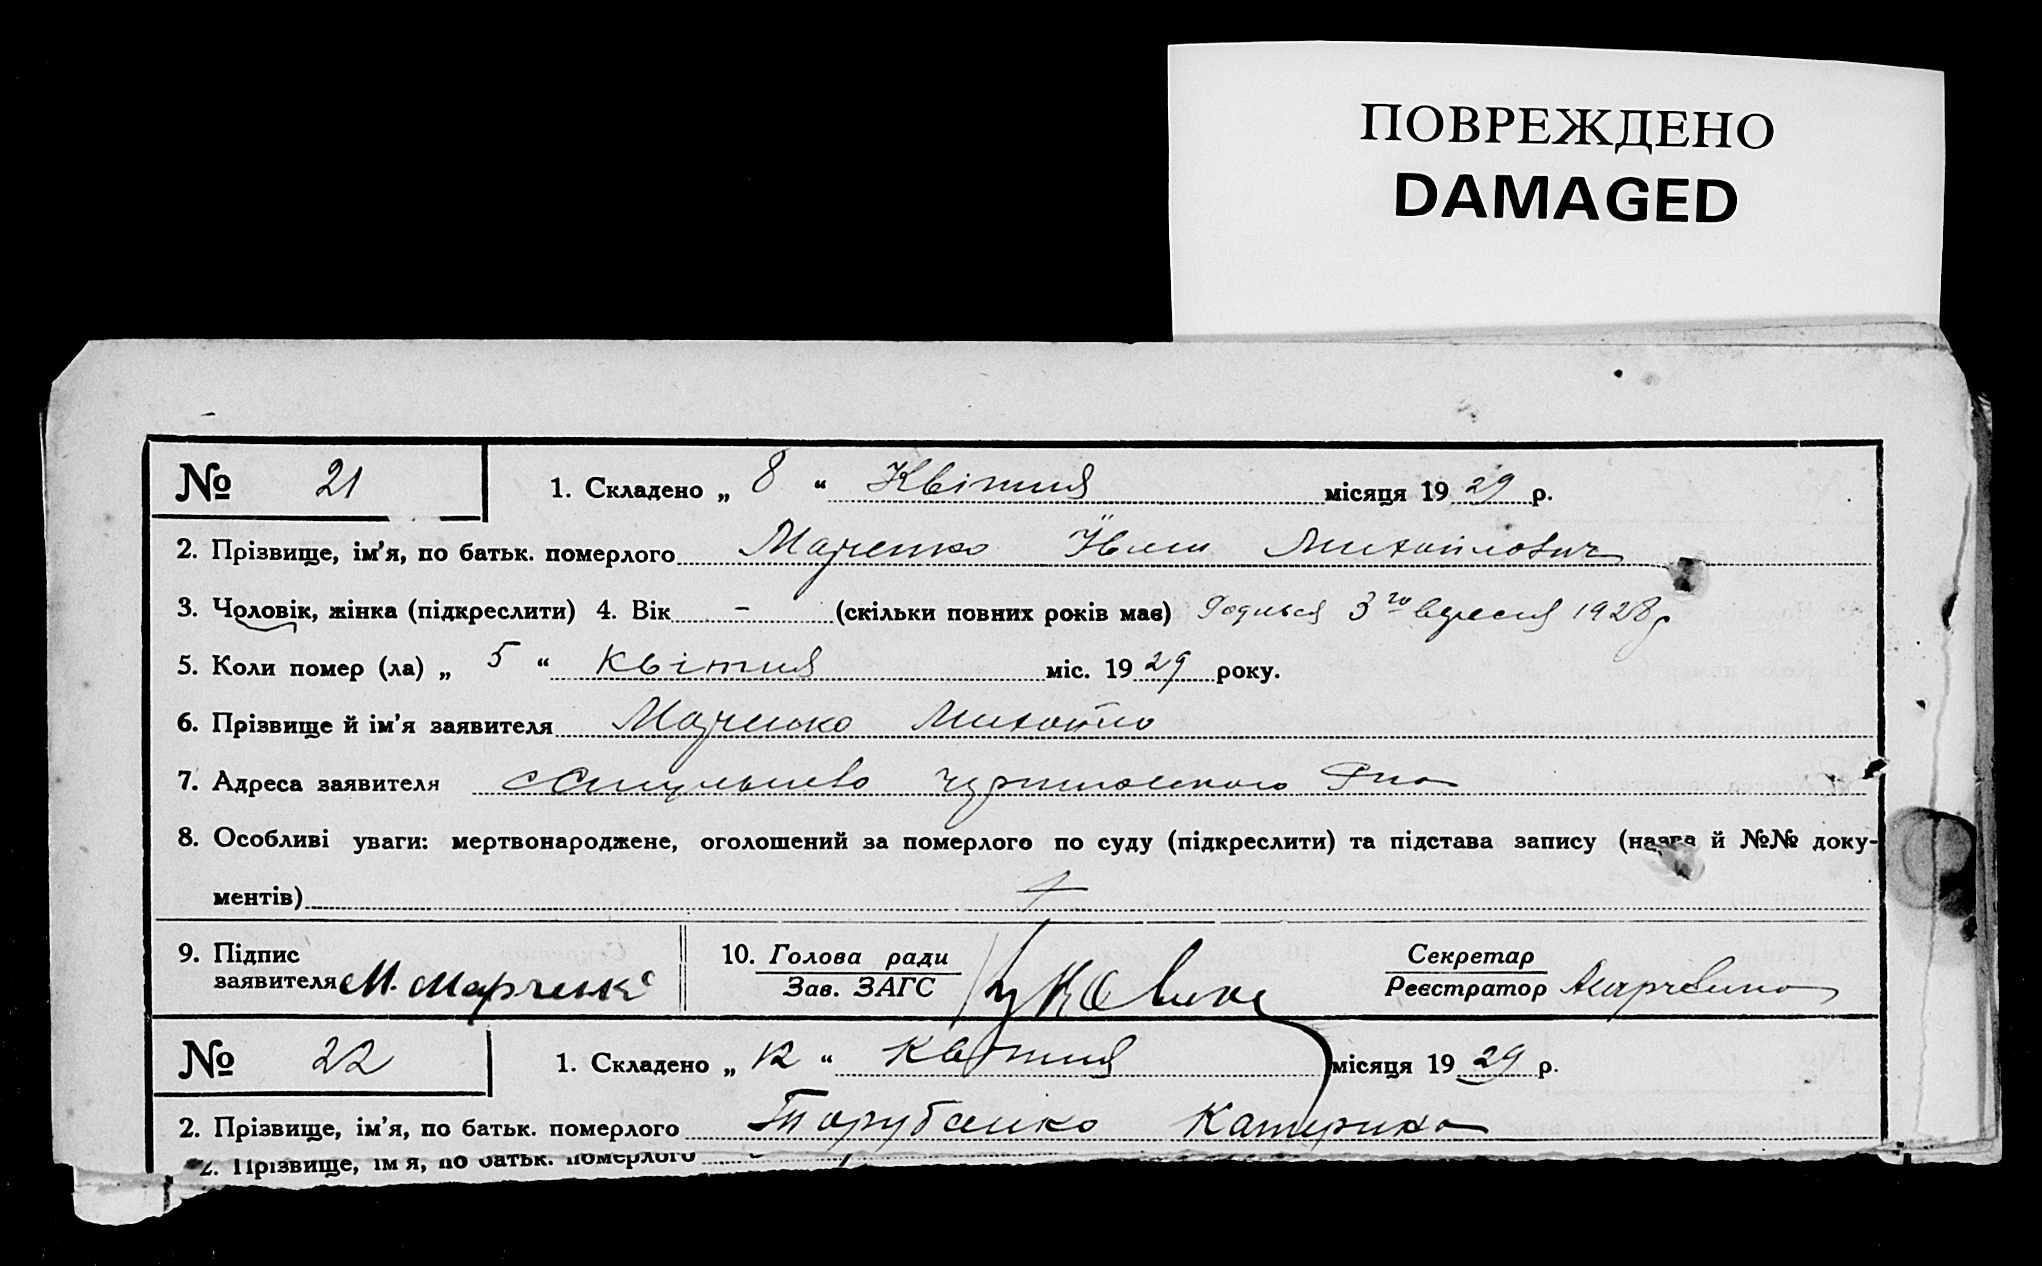 ПОВРЕЖДЕНО
DAMAGED
№ 21 1. Складено „ 8 “ Квітня місяця 19 29 р.
2. Прізвище, ім’я, по батьк. померлого Марченко Михайлович
3. Чоловік, жінка (підкреслити) 4. Вік - (скільки повних років має) Родився 3го вересня 1928 р
5. Коли помер (ла) „ 5 “ Квітня міс. 19 29 року.
6. Прізвище й ім’я заявителя Марченко Михайло
7. Адреса заявителя
8. Особливі уваги: мертвонароджене, оголошений за померлого по суду (підкреслити) та підстава запису (назва й №№ доку-
ментів)
9. Підпис
заявителя М. Марченко
10. Голова ради
Зав. ЗАГС
Секретар
Реєстратор
№ 22 1. Складено „ 12 “ Квітня місяця 19 29 р.
2. Прізвище, ім’я, по батьк. померлого Тарубанко Катерина
2. Прізвище, ім’я, по батьк. померлого